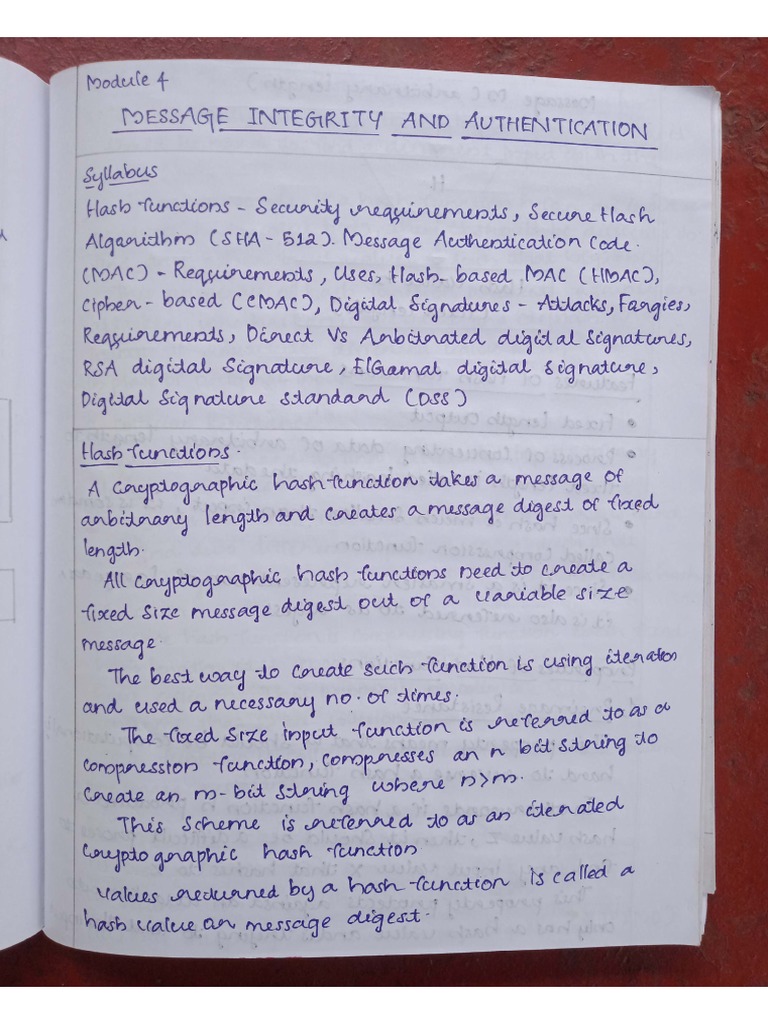 Module 4
MESSAGE INTEGRITY AND AUTHENTICATION
Syllabus
Hash functions - Security requirements, Secure Hash
Algorithm (SHA - 512). Message Authentication Code.
(MAC) - Requirements, Uses, Hash-based MAC (HMAC),
Cipher - based (CMAC), Digital Signatures - Attacks, Forgies,
Requirements, Direct Vs Arbitrated digital signatures,
RSA digital Signature, ElGamal digital signature,
Digital Signature standard (DSS)
Hash functions.
A cryptographic hash function takes a message of
arbitrary length and creates a message digest of fixed
length.
All cryptographic hash functions need to create a
fixed size message digest out of a variable size
message.
The best way to create such function is using iteration
and used a necessary no. of times.
The fixed size input function is referred to as a
compression function, compresses an n bit string to
create an m-bit string where n>m.
This scheme is referred to as an iterated
cryptographic hash function
Values returned by a hash function is called a
hash value or message digest.